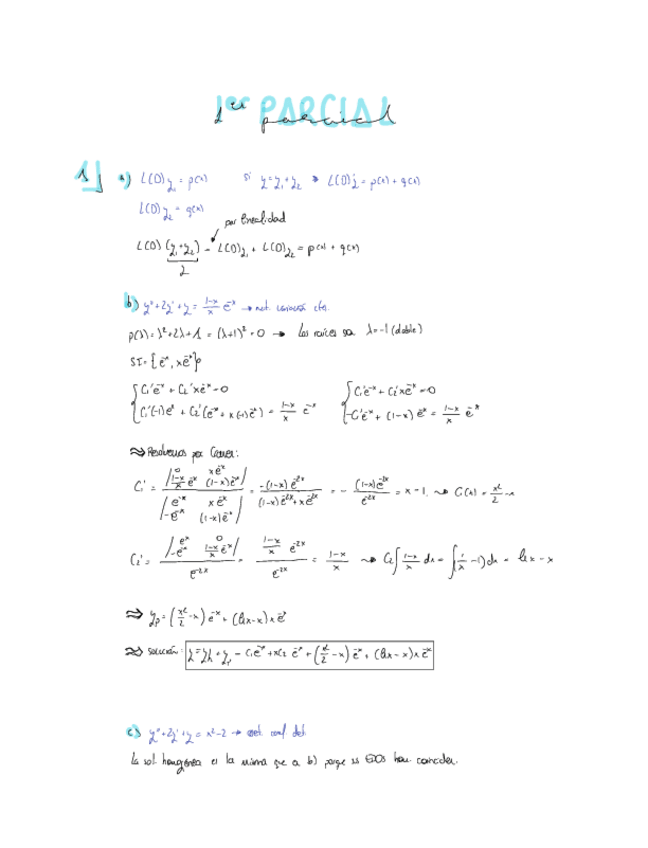 1er PARCIAL
1er parcial
1) a) L(D)y₁ = p(x) si y = y₁ + y₂ → L(D)y = p(x) + q(x)
L(D)y₂ = q(x)
por linealidad
L(D)(y₁+y₂) = L(D)y₁ + L(D)y₂ = p(x) + q(x)
y
b) y'' + 2y' + y = (1-x)/x e^-x → met. variación ctes.
p(λ) = λ² + 2λ + 1 = (λ+1)² = 0 → Las raíces son λ = -1 (doble)
= {e^-x, xe^-x}
{ C₁'e^-x + C₂'xe^-x = 0 { C₁'e^-x + C₂'xe^-x = 0
{ C₁'(-1)e^-x + C₂'(e^-x + x(-1)e^-x) = (1-x)/x e^-x { -C₁'e^-x + (1-x)e^-x = (1-x)/x e^-x
⇒ Resolvemos por Cramer:
C₁' = |0 xe^-x; (1-x)/x e^-x (1-x)e^-x| / |e^-x xe^-x; -e^-x (1-x)e^-x| = -(1-x)e^-2x / ((1-x)e^-2x + xe^-2x) = - (1-x)e^-2x / e^-2x = x-1 ⇝ C₁(x) = x²/2 - x
C₂' = |e^-x 0; -e^-x (1-x)/x e^-x| / e^-2x = (1-x)/x e^-2x / e^-2x = (1-x)/x ⇝ C₂ ∫ (1-x)/x dx = ∫(1/x - 1)dx = ln x - x
⇒ yp = (x²/2 - x) e^-x + (ln x - x) x e^-x
⇒ SOLUCIÓN: y = yh + yp = C₁e^-x + xC₂ e^-x + (x²/2 - x) e^-x + (ln x - x) x e^-x
c) y'' + 2y' + y = x² - 2 → met. coef. det.
La sol homogénea es la misma que a b) porque ss EDOs hom. coinciden.